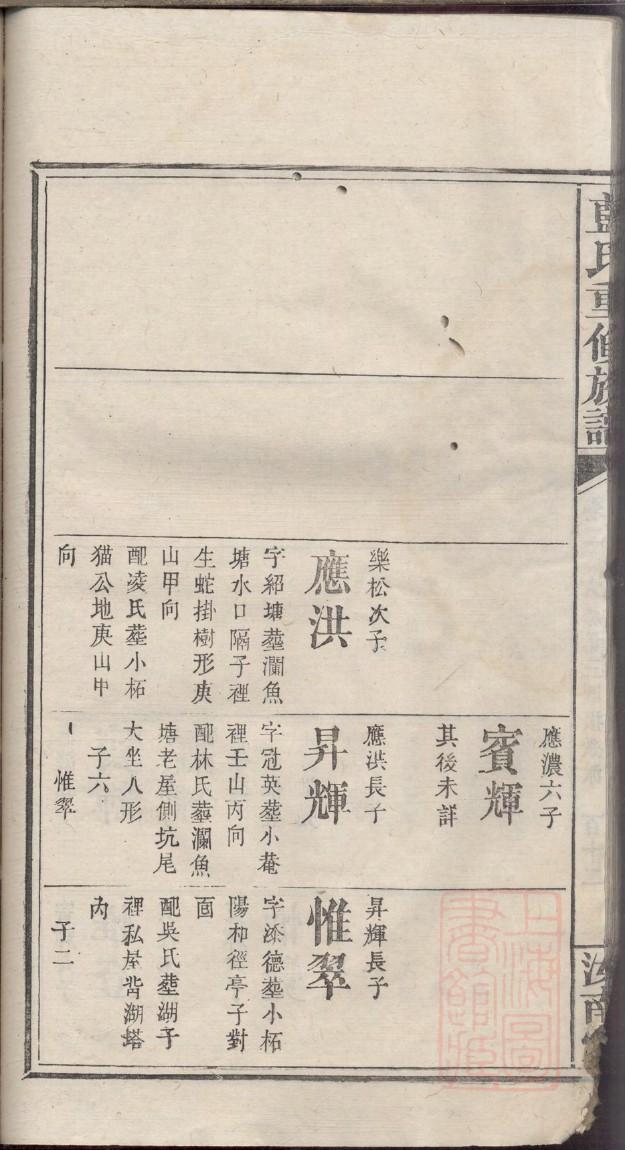 藍氏重修族譜
樂松次子
應洪
字紹塘塟瀾魚
塘水口隔子裡
生蛇掛樹形庚
山甲向
配凌氏塟小柘
猫公地庚山甲
向
應濃六子
賓輝
其後未詳
應洪長子
昇輝
字冠英塟小菴
裡壬山丙向
配林氏塟瀾魚
塘老屋側坑尾
大坐人形
子六
惟翠
昇輝長子
惟翠
字添德塟小柘
陽和徑亭子對
面
配吳氏塟湖子
裡私屋背湖塔
內
子二
汝南
上海圖書館藏